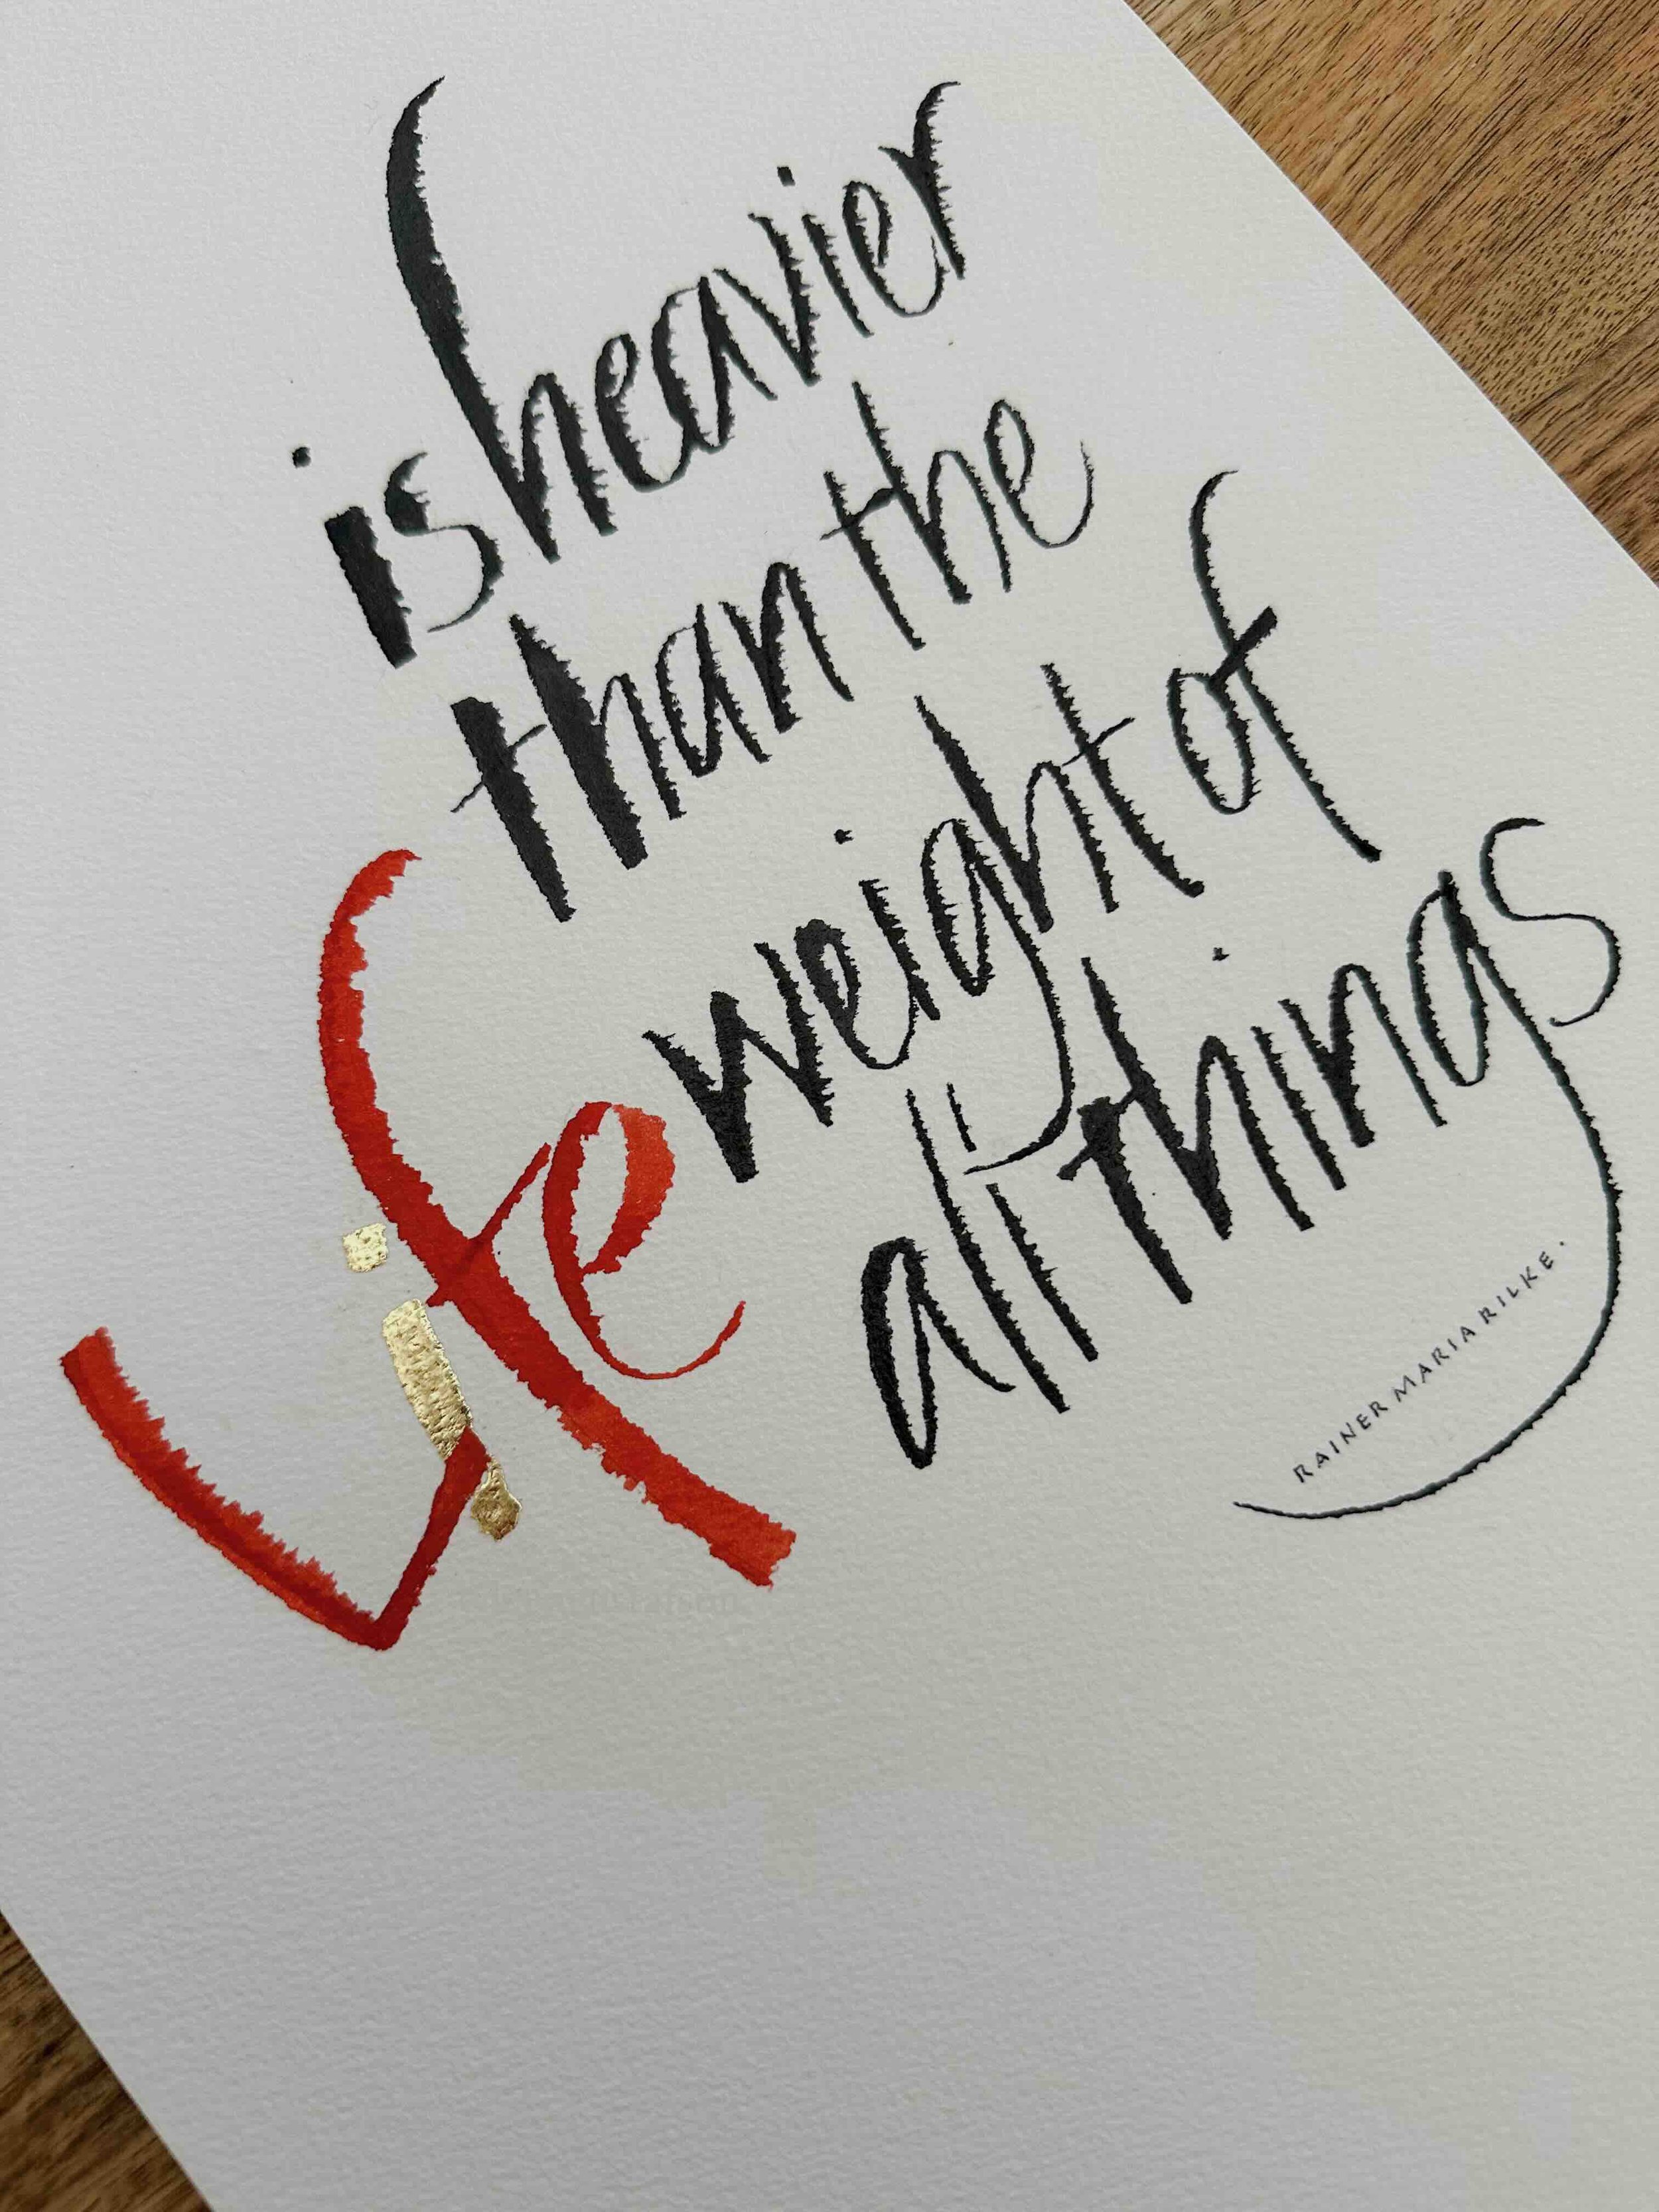 Life
is heavier
than the
weight of
all things
RAINER MARIA RILKE.